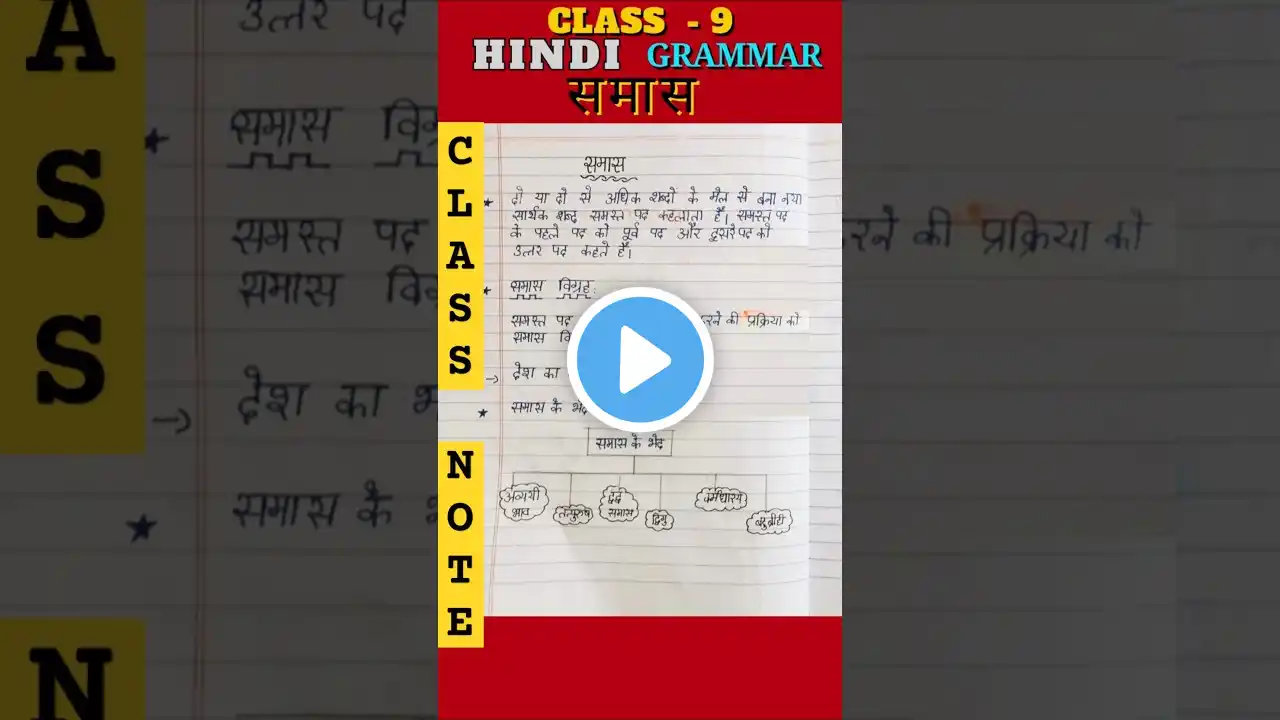 CLASS - 9
HINDI GRAMMAR
समास
CLASS
NOTE
समास
दो या दो से अधिक शब्दों के मेल से बना नया
सार्थक शब्द समस्त पद कहलाता है। समस्त पद
के पहले पद को पूर्व पद और दूसरे पद को
उत्तर पद कहते हैं।
समास विग्रह:
समस्त पद करने की प्रक्रिया को
समास वि
→ देश का
समास के भेद
समास के भेद
अव्ययी
भाव
तत्पुरुष
द्वंद्व
समास
द्विगु
कर्मधारय
बहुव्रीही
A
S
S
N
उत्तर पद
समास विग्र
समस्त पद
रने की प्रक्रिया को
समास वि
→ देश का भ
समास के भे